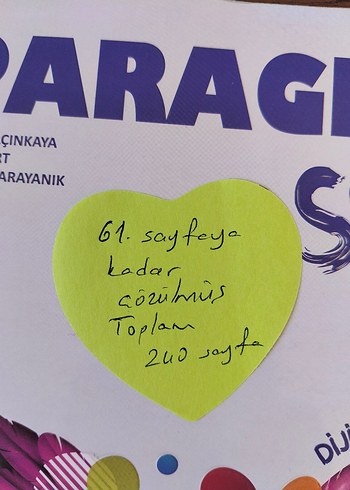 PARAG
ÇINKAYA
RT
ARAYANIK
61. sayfaya
kadar
çözülmüş
Toplam
240 sayfa
DİJİ